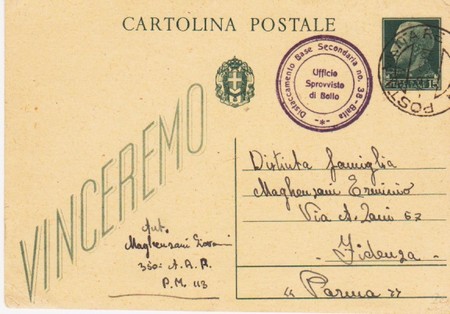 CARTOLINA POSTALE
Distaccamento Base Secondaria no. 38 - Baita
Ufficio
Sprovvisto
di Bollo
VINCEREMO
Distinta famiglia
Maghenzani Erminio
Via A. Zani 67
Fidenza
"Parma"
Aut.
Maghenzani
350: A. A. R.
P. M. 113